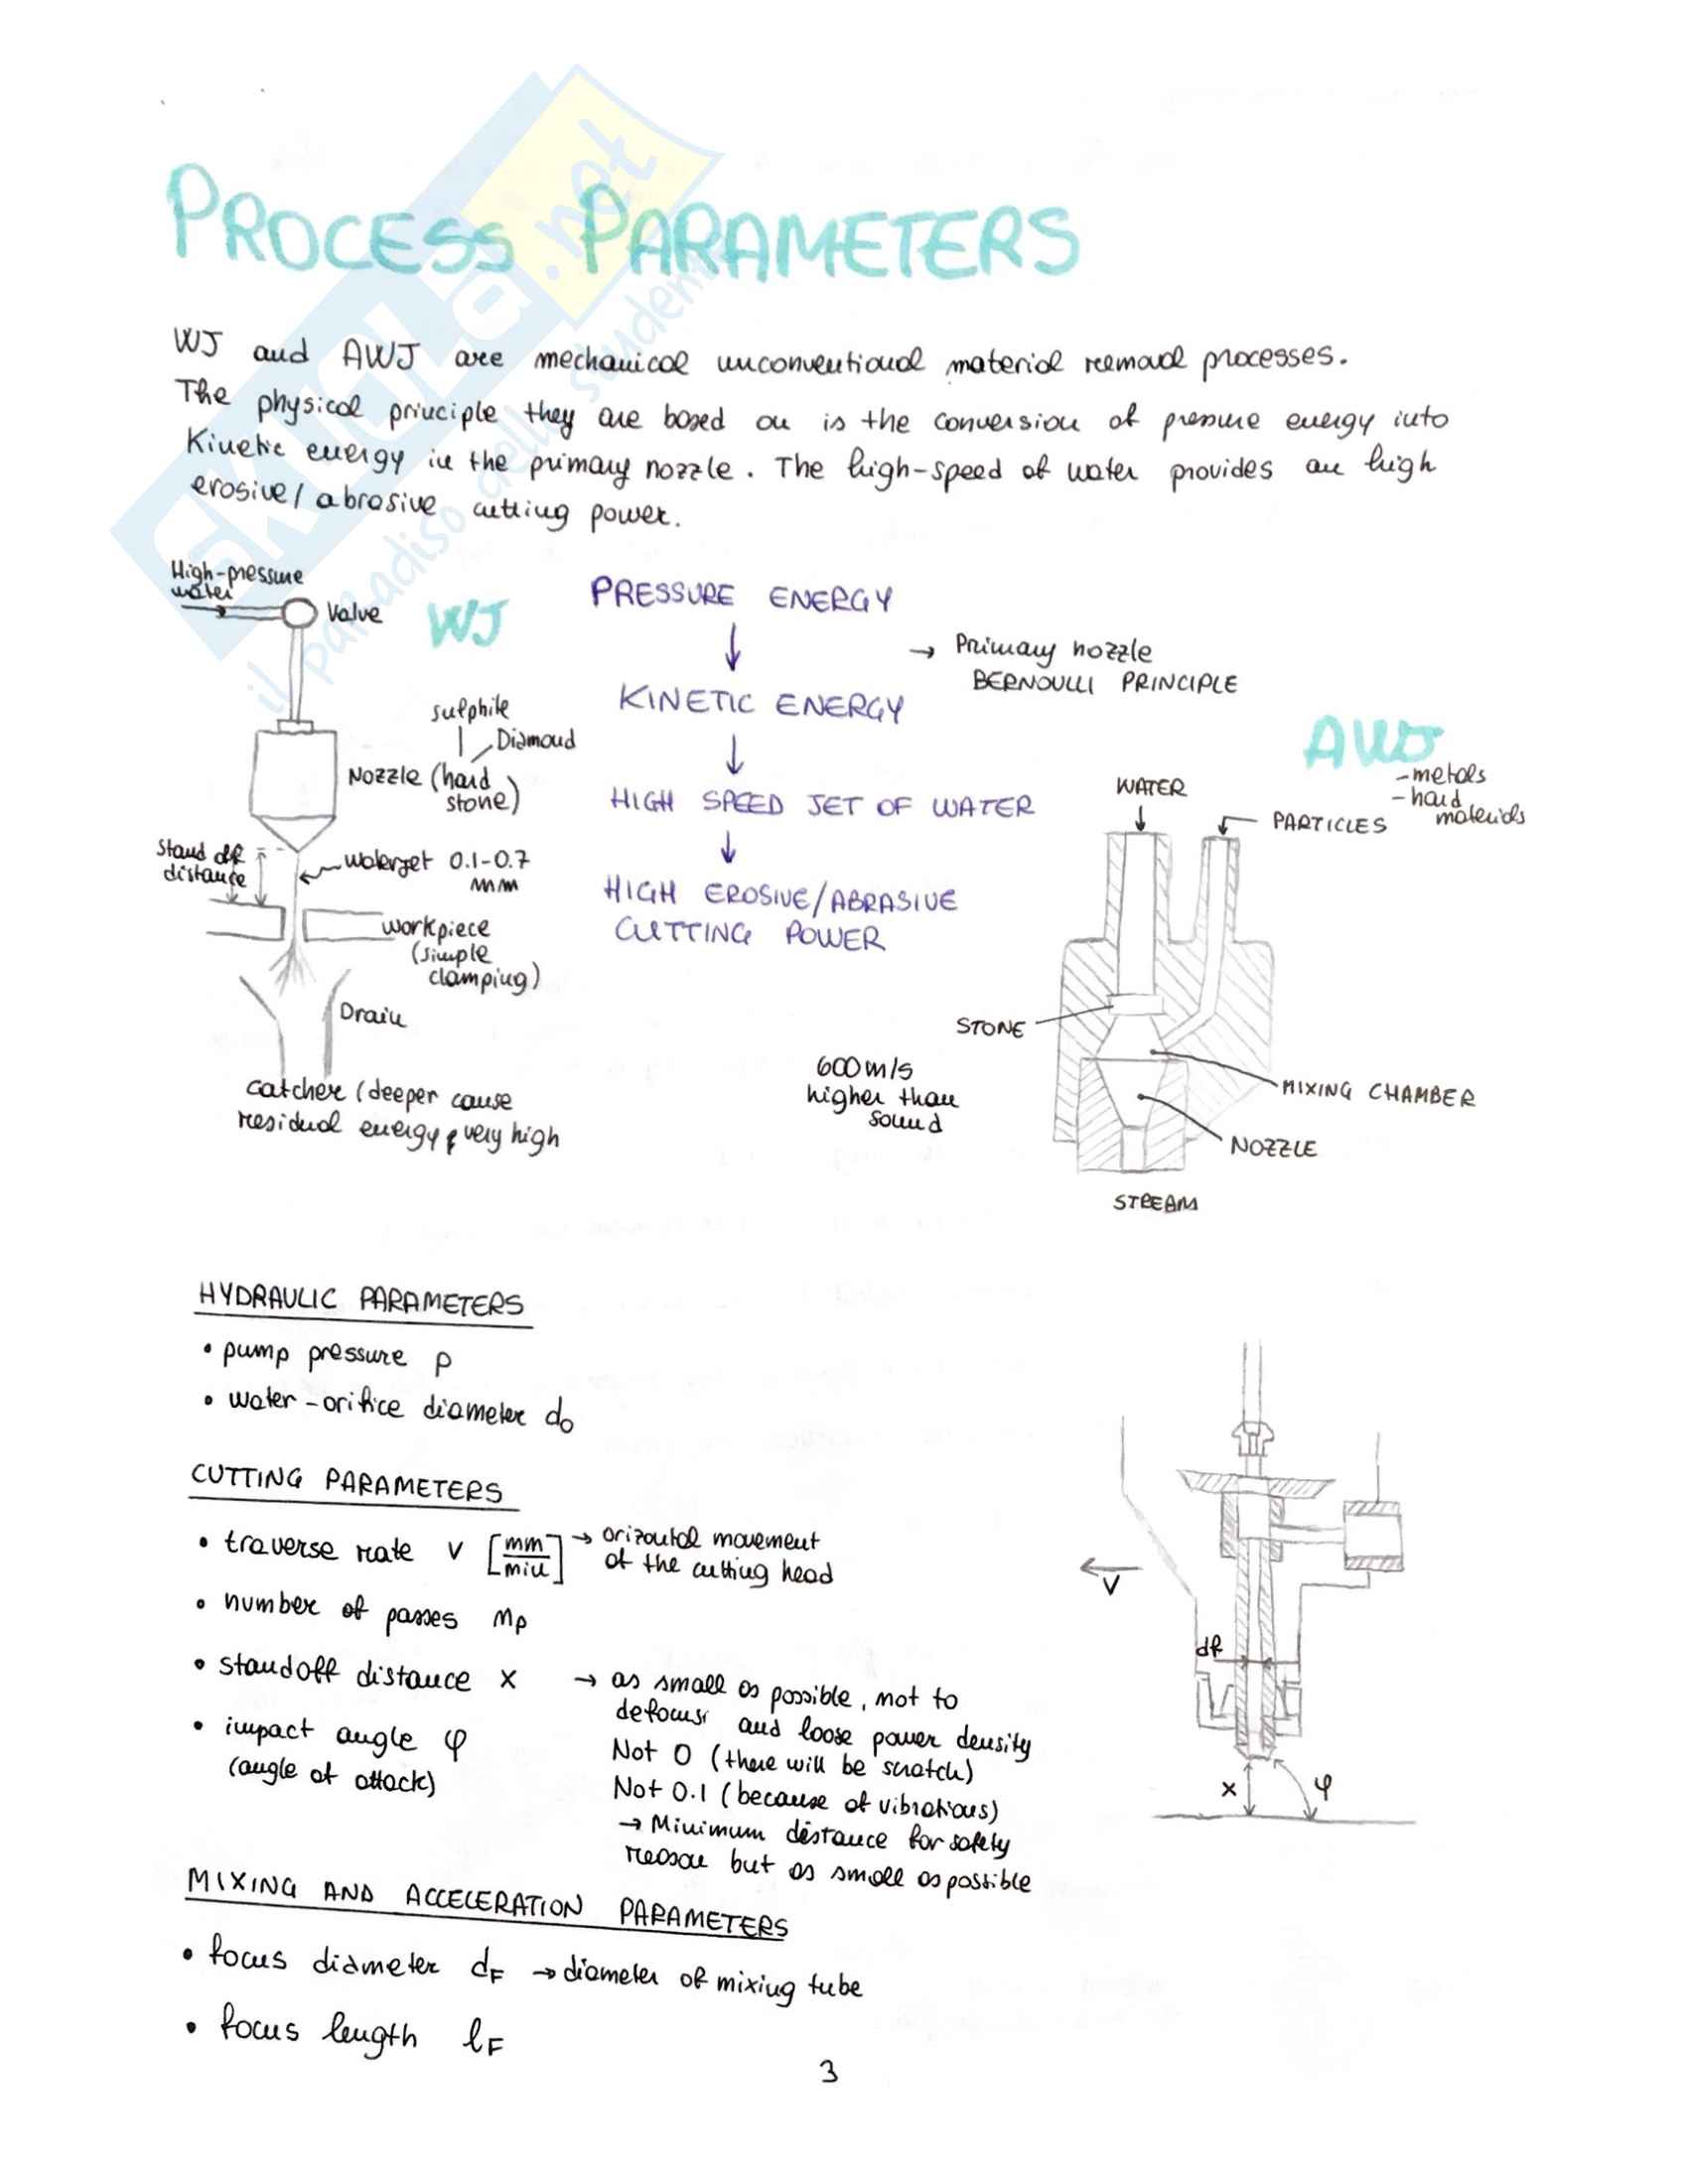 PROCESS PARAMETERS
SKUOLA.net
il paradiso dello studente
WJ and AWJ are mechanical unconventional material removal processes.
The physical principle they are based on is the conversion of pressure energy into
Kinetic energy in the primary nozzle. The high-speed of water provides an high
erosive/abrasive cutting power.
High-pressure
water
Valve
WJ
sulphite
Diamond
Nozzle (hard
stone)
Stand off
distance
Waterjet 0.1-0.7
mm
workpiece
(simple
clamping)
Drain
catcher (deeper cause
residual energy very high
PRESSURE ENERGY
↓
→ Primary nozzle
BERNOULLI PRINCIPLE
KINETIC ENERGY
↓
HIGH SPEED JET OF WATER
↓
HIGH EROSIVE/ABRASIVE
CUTTING POWER
AWJ
-metals
-hard
materials
WATER
PARTICLES
STONE
600m/s
higher than
sound
MIXING CHAMBER
NOZZLE
STREAM
HYDRAULIC PARAMETERS
• pump pressure p
• water-orifice diameter do
CUTTING PARAMETERS
• traverse rate v [mm/min] → orizontal movement
of the cutting head
• number of passes mp
• standoff distance x → as small as possible, not to
defocus and loose power density
Not 0 (there will be scratch)
Not 0.1 (because of vibrations)
→ Minimum distance for safety
reason but as small as possible
• impact angle φ
(angle of attack)
v
df
x
φ
MIXING AND ACCELERATION PARAMETERS
• focus diameter dF → diameter of mixing tube
• focus length lF
3